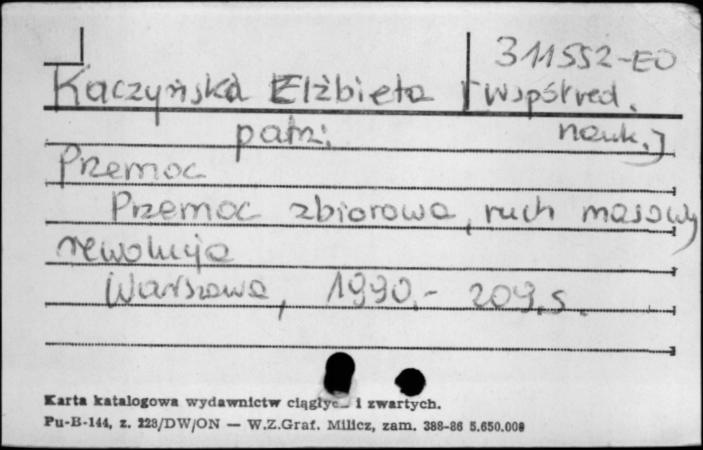 311552-EO
Kaczyńska Elżbieta [współred.
patrz: nauk.]
Przemoc
Przemoc zbiorowa, ruch masowy
rewolucja
Warszawa, 1990.- 209.s.
Karta katalogowa wydawnictw ciągłyc_ i zwartych.
Pu-B-144, z. 228/DW/ON — W.Z.Graf. Milicz, zam. 388-86 5.650.000